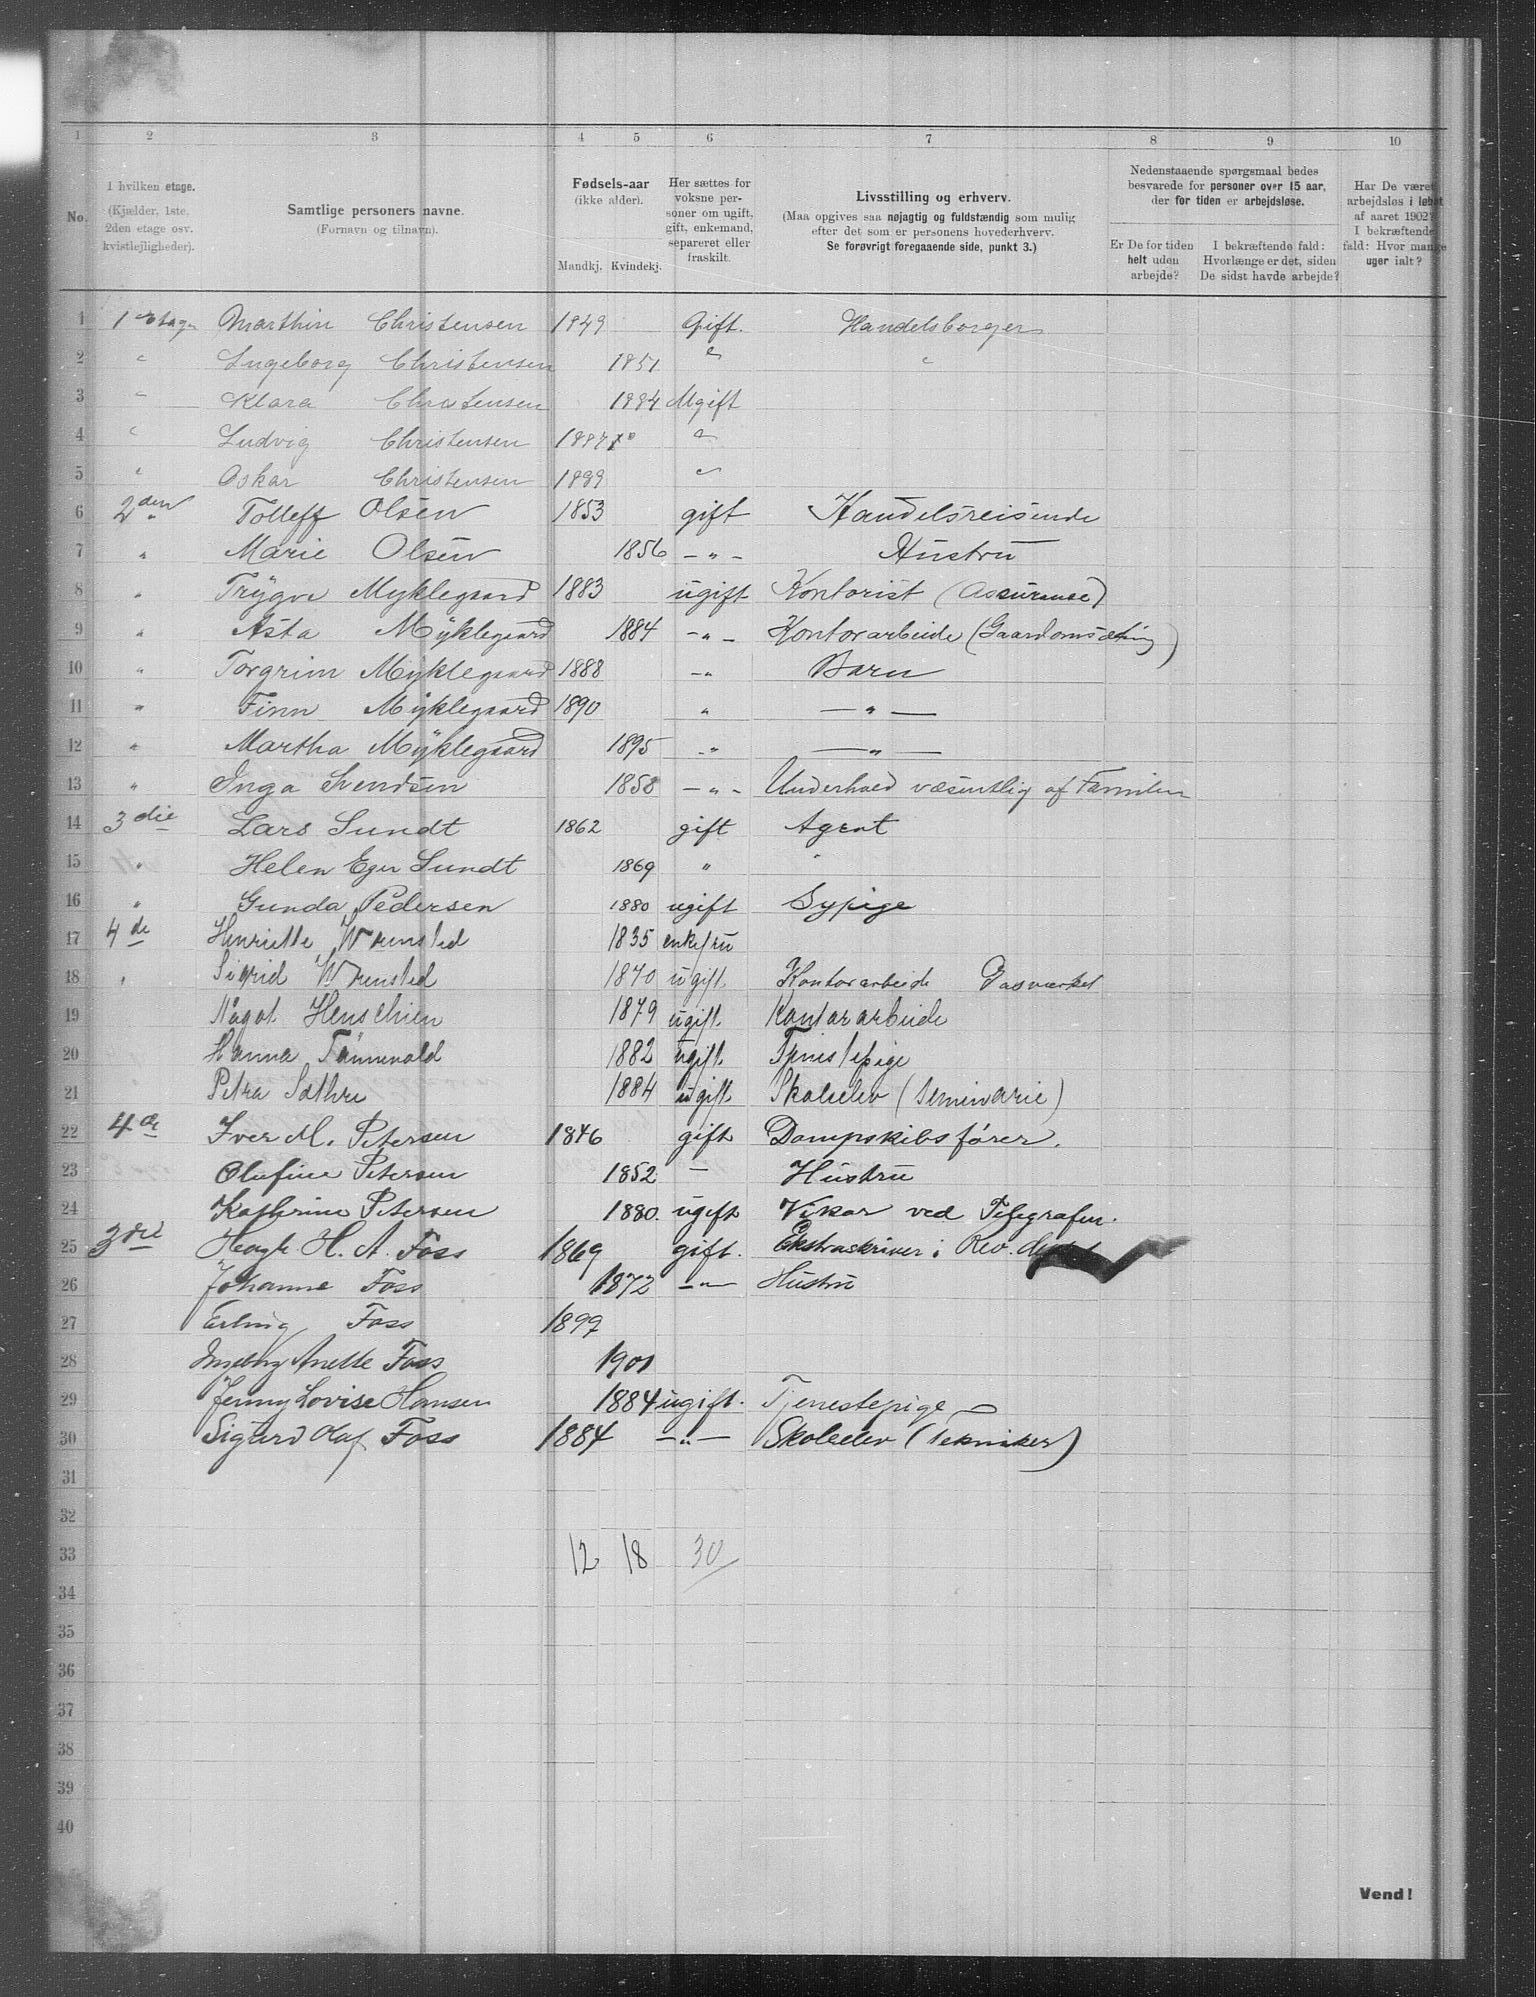 1 2 3 4 5 6 7 8 9 10
No.
I hvilken etage.
(Kjælder, 1ste,
2den etage osv.
kvistlejligheder).
Samtlige personers navne.
(Fornavn og tilnavn).
Fødsels-aar
(ikke alder).
Mandkj. Kvindekj.
Her sættes for
voksne per-
soner om ugift,
gift, enkemand,
separeret eller
fraskilt.
Livsstilling og erhverv.
(Maa opgives saa nøjagtig og fuldstændig som mulig
efter det som er personens hovederhverv.
Se forøvrigt foregaaende side, punkt 3.)
Nedenstaaende spørgsmaal bedes
besvarede for personer over 15 aar,
der for tiden er arbejdsløse.
Er De for tiden
helt uden
arbejde?
I bekræftende fald:
Hvorlænge er det, siden
De sidst havde arbejde?
Har De været
arbejdsløs i løbet
af aaret 1902?
I bekræftende
fald: Hvor mange
uger ialt?
1 1 Etage Marthin Christensen 1849 Gift. Handelsborger
2 " Ingeborg Christensen 1851 " "
3 " Klara Christensen 1884 Ugift
4 " Ludvig Christensen 1887 "
5 " Oskar Christensen 1889 "
6 2den Tolleff Olsen 1853 gift Handelsreisende
7 " Marie Olsen 1856 - " - Hustru
8 " Trygve Myklegaard 1883 ugift Kontorist (Assurance)
9 " Asta Myklegaard 1884 - " - Kontorarbeide (Gaardomsætning)
10 " Torgrim Myklegaard 1888 - " Barn
11 " Finn Myklegaard 1890 " — " —
12 " Martha Myklegaard 1895 - " — " —
13 " Inga Svendsen 1858 - " - Underhold væsentlig af Familien
14 3die Lars Sundt 1862 gift Agent
15 " Helen Eger Sundt 1869 " "
16 " Gunda Pedersen 1880 ugift Sypige
17 4de Henriette 1835 enkefru
18 " Sigrid 1870 ugift Kontorarbeide Gasværket
19 Något Henschien 1879 ugift Kontorarbeide
20 Hanna Tønnevold 1882 ugift Tjenestepige
21 Petra Sæthre 1884 ugift Skoleelev (Seminarie)
22 4de Iver M. Petersen 1846 gift Dampskibsfører.
23 Olufine Petersen 1852 — Hustru
24 Kathrine Petersen 1880. ugift Vikar ved Telegrafen.
25 3die H. A. Foss 1869 gift. Ekstraskriver i Rev. dept
26 Johanne Foss 1872 — " — Hustru
27 Erling Foss 1899
28 Ingeborg Anette Foss 1901
29 Jenny Lovise Hansen 1884 ugift. Tjenestepige
30 Sigurd Olaf Foss 1884 — " — Skoleelev (Tekniker)
31
32
33 12 18 30
34
35
36
37
38
39
40
Vend!